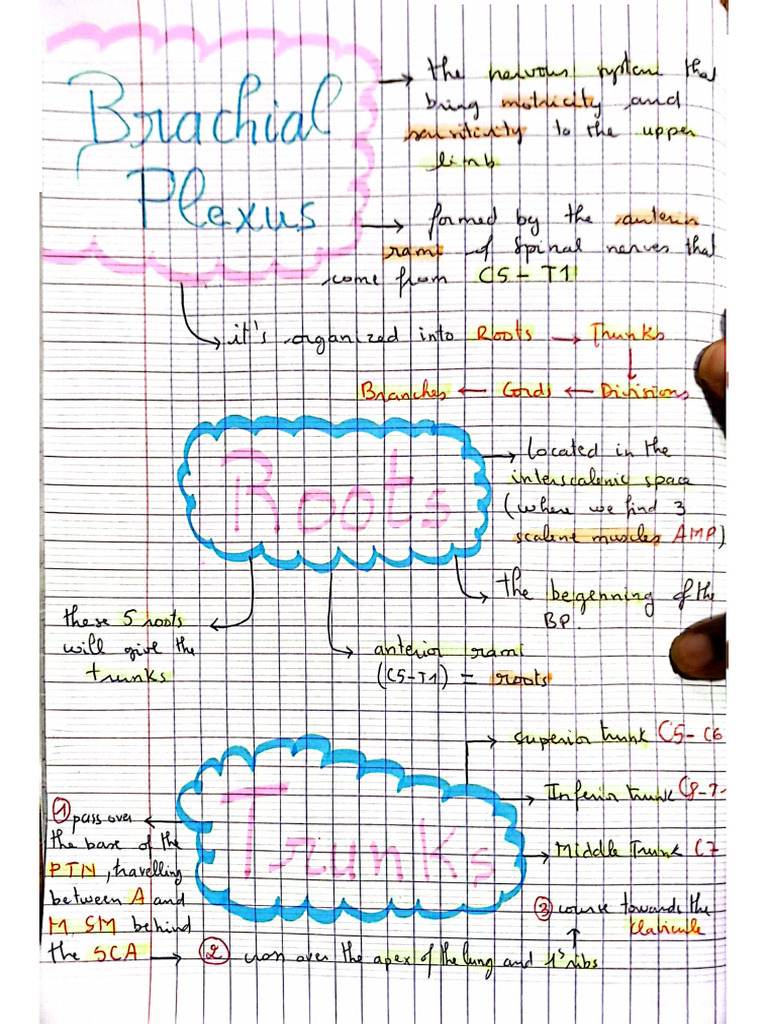 Brachial
Plexus
→ the nervous system that
bring motricity and
sensitivity to the upper
limb
→ formed by the anterior
rami of spinal nerves that
come from C5 - T1
→ it's organized into Roots → Trunks
↓
Branches ← Cords ← Divisions
Roots
→ Located in the
interscalenic space
(where we find 3
scalene muscles AMP)
→ the begenning of the
BP.
these 5 roots
will give the
trunks
→ anterior rami
(C5-T1) = roots
Trunks
→ superior trunk C5- C6
→ Inferior trunk C8-T1
→ Middle Trunk C7
① pass over
the base of the
PTN, travelling
between A and
M. SM behind
the SCA → ② cross over the apex of the lung and 1's ribs
③ course towards the
clavicule